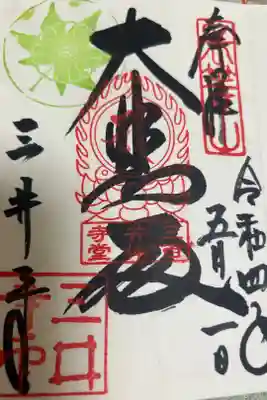 奉拝
令和四年
五月一日
大悲殿
三井寺
三井寺印